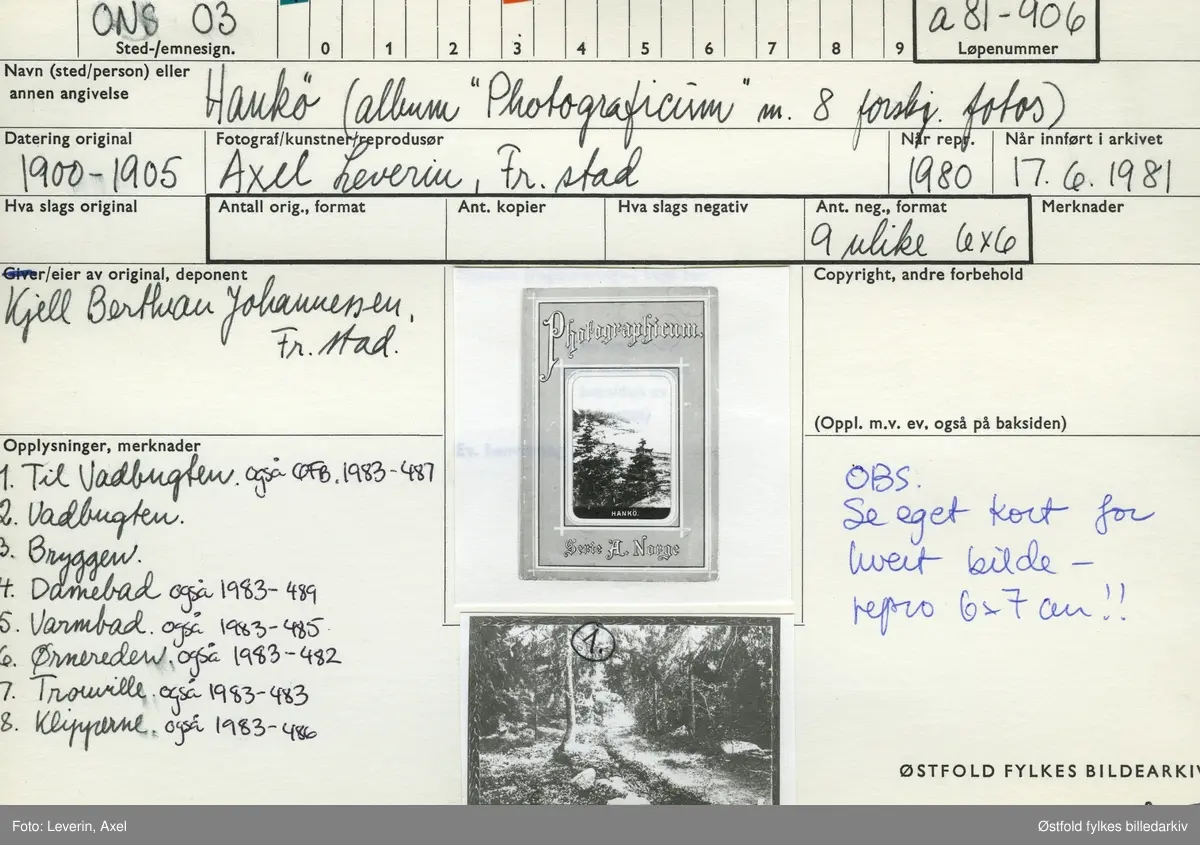 ONS 03
Sted-/emnesign.
0 1 2 3 4 5 6 7 8 9
a 81-906
Løpenummer
Navn (sted/person) eller
annen angivelse
Hankö (album "Photograficum" m. 8 forskj. fotos)
Datering original
1900-1905
Fotograf/kunstner/reprodusør
Axel Leverin, Fr. stad
Når repr.
1980
Når innført i arkivet
17. 6. 1981
Hva slags original
Antall orig., format
Ant. kopier
Hva slags negativ
Ant. neg., format
9 ulike 6x6
Merknader
Giver/eier av original, deponent
Kjell Berthvan Johannessen,
Fr. stad.
Photographicum.
HANKÖ.
Serie A. Norge
Copyright, andre forbehold
(Oppl. m.v. ev. også på baksiden)
Opplysninger, merknader
1. Til Vadbugten. også ØFB. 1983-487
2. Vadbugten.
3. Bryggen.
4. Damebad også 1983-489
5. Varmbad. også 1983-485.
6. Ørnereden. også 1983-482
7. Trouville. også 1983-483
8. Klipperne. også 1983-486
1.
OBS.
Se eget kort for
hvert bilde -
repro 6x7 cm!!
ØSTFOLD FYLKES BILDEARKIV
Foto: Leverin, Axel
Østfold fylkes billedarkiv